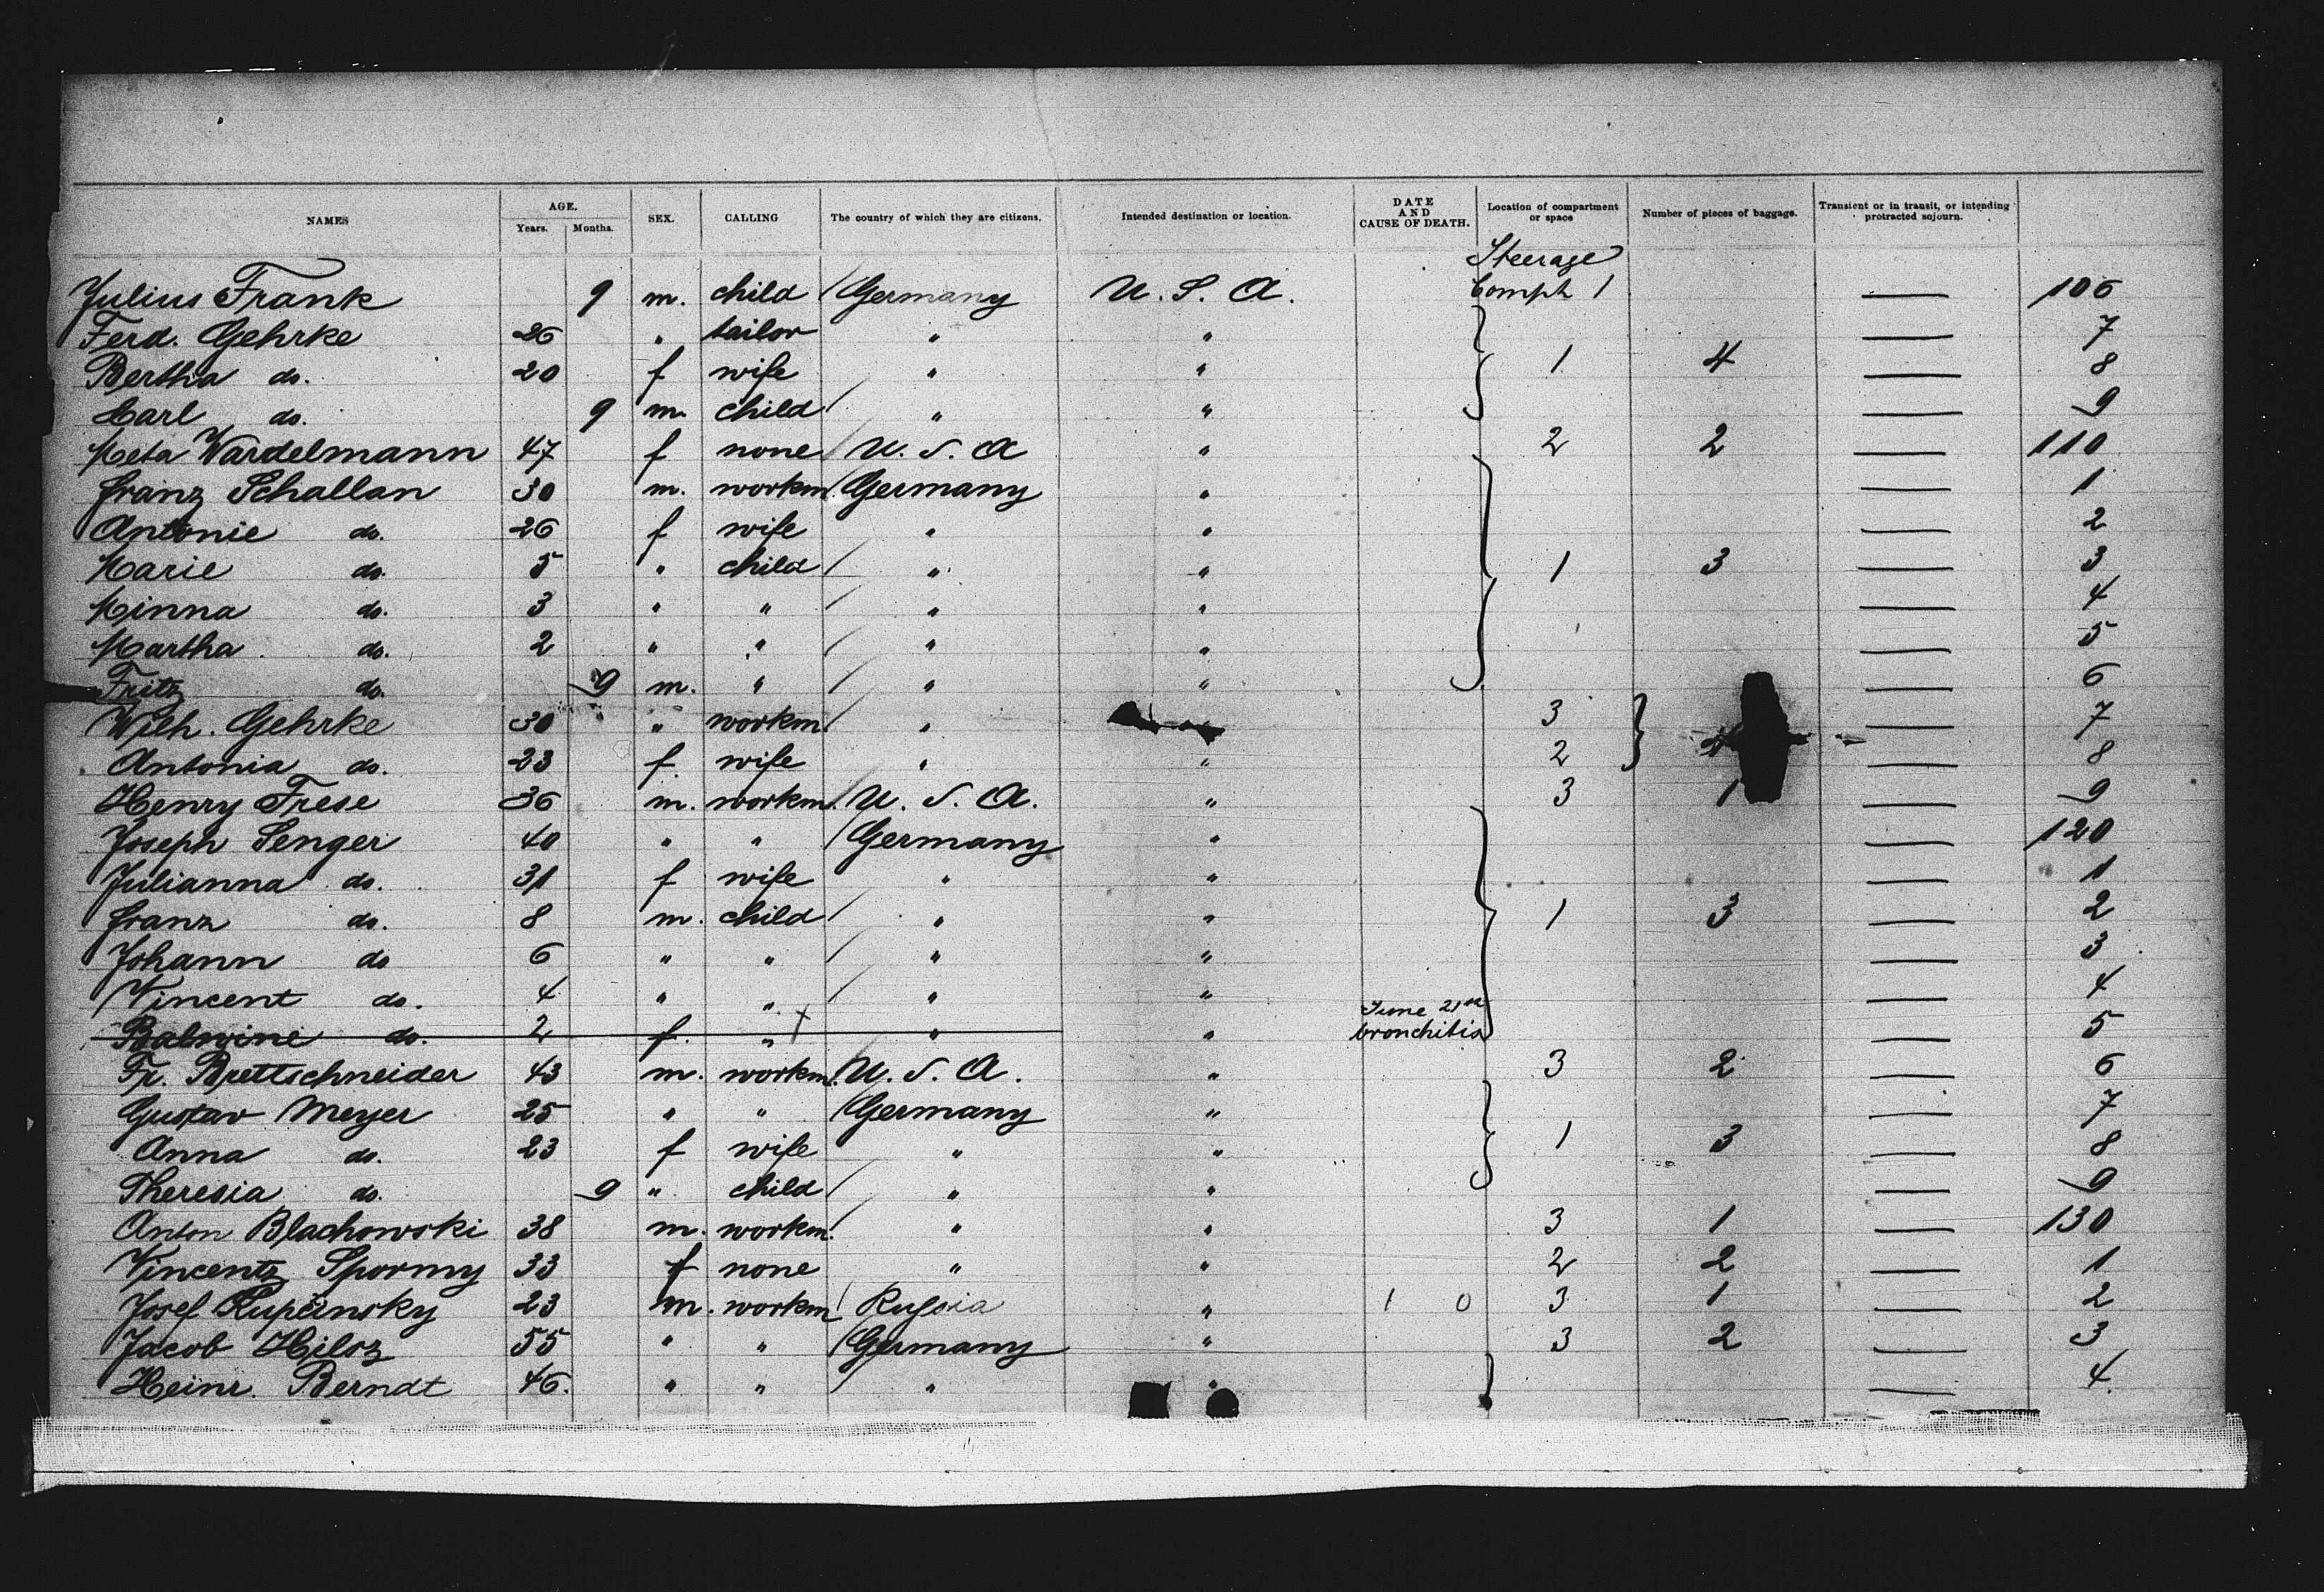 NAMES AGE. Years. Months. SEX. CALLING The country of which they are citizens. Intended destination or location. DATE AND CAUSE OF DEATH. Location of compartment or space Number of pieces of baggage. Transient or in transit, or intending protracted sojourn.
Steerage
Julius Frank 9 m. child Germany U. S. A. Compt 1 — 106
Ferd. Gehrke 26 " tailor " " — 7
Bertha do. 20 f wife " " 1 4 — 8
Carl do. 9 m. child " " — 9
Meta Wardelmann 47 f none U. S. A " 2 2 — 110
Franz Schallan 30 m. workm. Germany " — 1
Antonie do. 26 f wife " " — 2
Marie do. 5 " child " " 1 3 — 3
Minna do. 3 " " " " — 4
Martha do. 2 " " " " — 5
Fritz do. 9 m. " " " — 6
Wilh. Gehrke 30 " workm. " 3 — 7
Antonia do. 23 f. wife " " 2 — 8
Henry Frese 36 m. workm. U. S. A. " 3 1 — 9
Joseph Senger 40 " " Germany " — 120
Julianna do. 31 f wife " " — 1
Franz do. 8 m. child " " 1 3 — 2
Johann do 6 " " " " — 3
Vincent do. 4 " " " " — 4
Balwine do. 2 f. " " " June 21st bronchitis — 5
Fr. Brettschneider 43 m. workm. U. S. A. " 3 2 — 6
Gustav Meyer 25 " " Germany " — 7
Anna do. 23 f wife " " 1 3 — 8
Theresia do. 9 " child " " — 9
Anton Blachowski 38 m. workm. " " 3 1 — 130
Vincentz Spormy 33 f none " " 2 2 — 1
Josef 23 m. workm Russia " 1 0 3 1 — 2
Jacob Hilsz 55 " " Germany " 3 2 — 3
Heinr. Berndt 46. " " " " — 4.